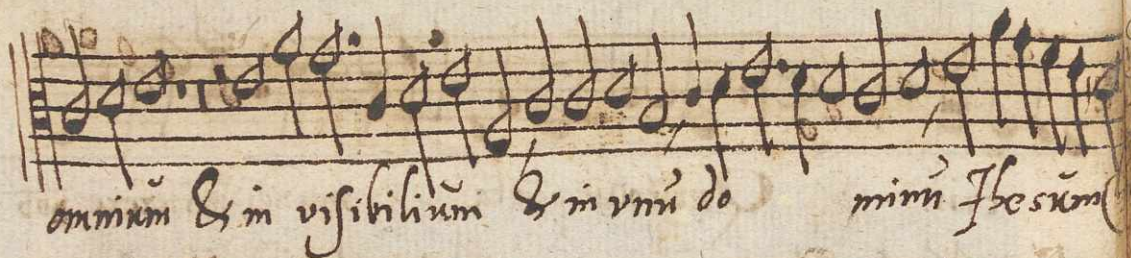 omniũm & in visibiliũm & in vnũ do minũ Jhesũm